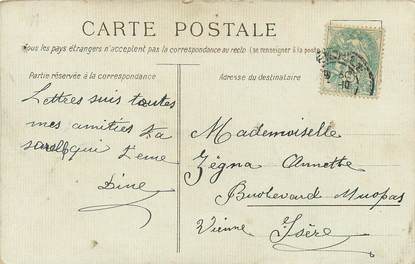 CARTE POSTALE
Tous les pays étrangers n'acceptent pas la correspondance au recto (se renseigner à la poste
Partie réservée à la correspondance
Adresse du destinataire
Lettres suis toutes
mes amities Ta
qui t'eme
Dine
Mademoiselle
Zégna Annette
Boulevard
Vienne Isère